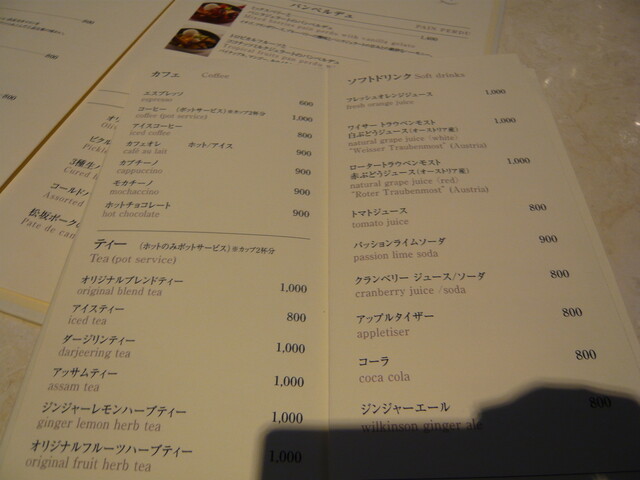 パンペルデュ
PAIN PERDU
カフェ Coffee
エスプレッソ
espresso 600
コーヒー (ポットサービス)※カップ2杯分
coffee (pot service) 1,000
アイスコーヒー
iced coffee 800
カフェオレ ホット/アイス
café au lait 900
カプチーノ
cappuccino 900
モカチーノ
mochaccino 900
ホットチョコレート
hot chocolate 900
ティー (ホットのみポットサービス)※カップ2杯分
Tea (pot service)
オリジナルブレンドティー
original blend tea 1,000
アイスティー
iced tea 800
ダージリンティー
darjeering tea 1,000
アッサムティー
assam tea 1,000
ジンジャーレモンハーブティー
ginger lemon herb tea 1,000
オリジナルフルーツハーブティー
original fruit herb tea 1,000
ソフトドリンク Soft drinks
フレッシュオレンジジュース 1,000
fresh orange juice
ワイサー トラウベンモスト 1,000
白ぶどうジュース(オーストリア産)
natural grape juice 〈white〉
"Weisser Traubenmost" (Austria)
ロータートラウベンモスト 1,000
赤ぶどうジュース(オーストリア産)
natural grape juice 〈red〉
"Roter Traubenmost" (Austria)
トマトジュース 800
tomato juice
パッションライムソーダ 900
passion lime soda
クランベリー ジュース/ソーダ 800
cranberry juice /soda
アップルタイザー 800
appletiser
コーラ 800
coca cola
ジンジャーエール 800
wilkinson ginger ale